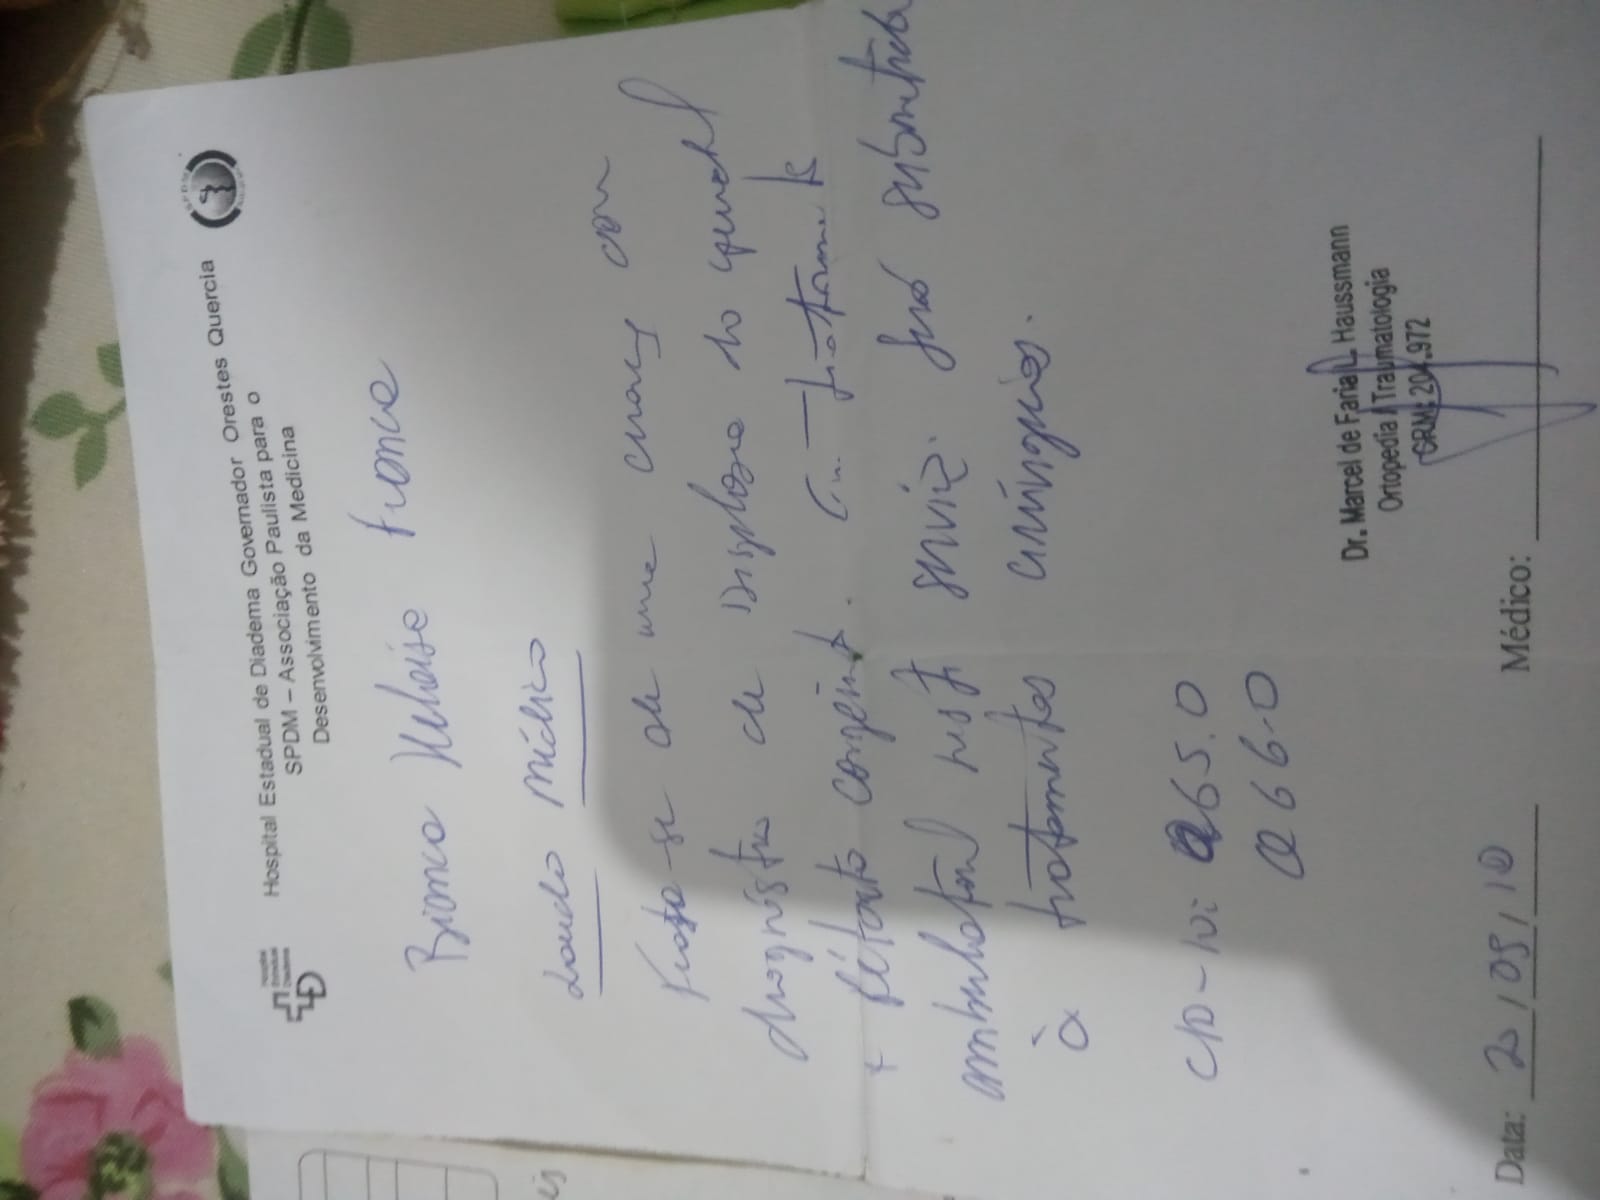 Hospital Estadual de Diadema Governador Orestes Quercia
SPDM – Associação Paulista para o
Desenvolvimento da Medicina
SPDM
Bianca Heloise França
Laudo Médico
Trata-se de uma criança com
diagnóstico de Displasia do quadril
+ Pé torto congênito. Em tratamento
ambulatorial neste serviço. Será submetida
à tratamentos cirúrgicos.
CID-10: Q65.0
Q66.0
Dr. Marcel de Faria L. Haussmann
Ortopedia / Traumatologia
CRM: 204.972
Data: 20/05/ Médico:
is